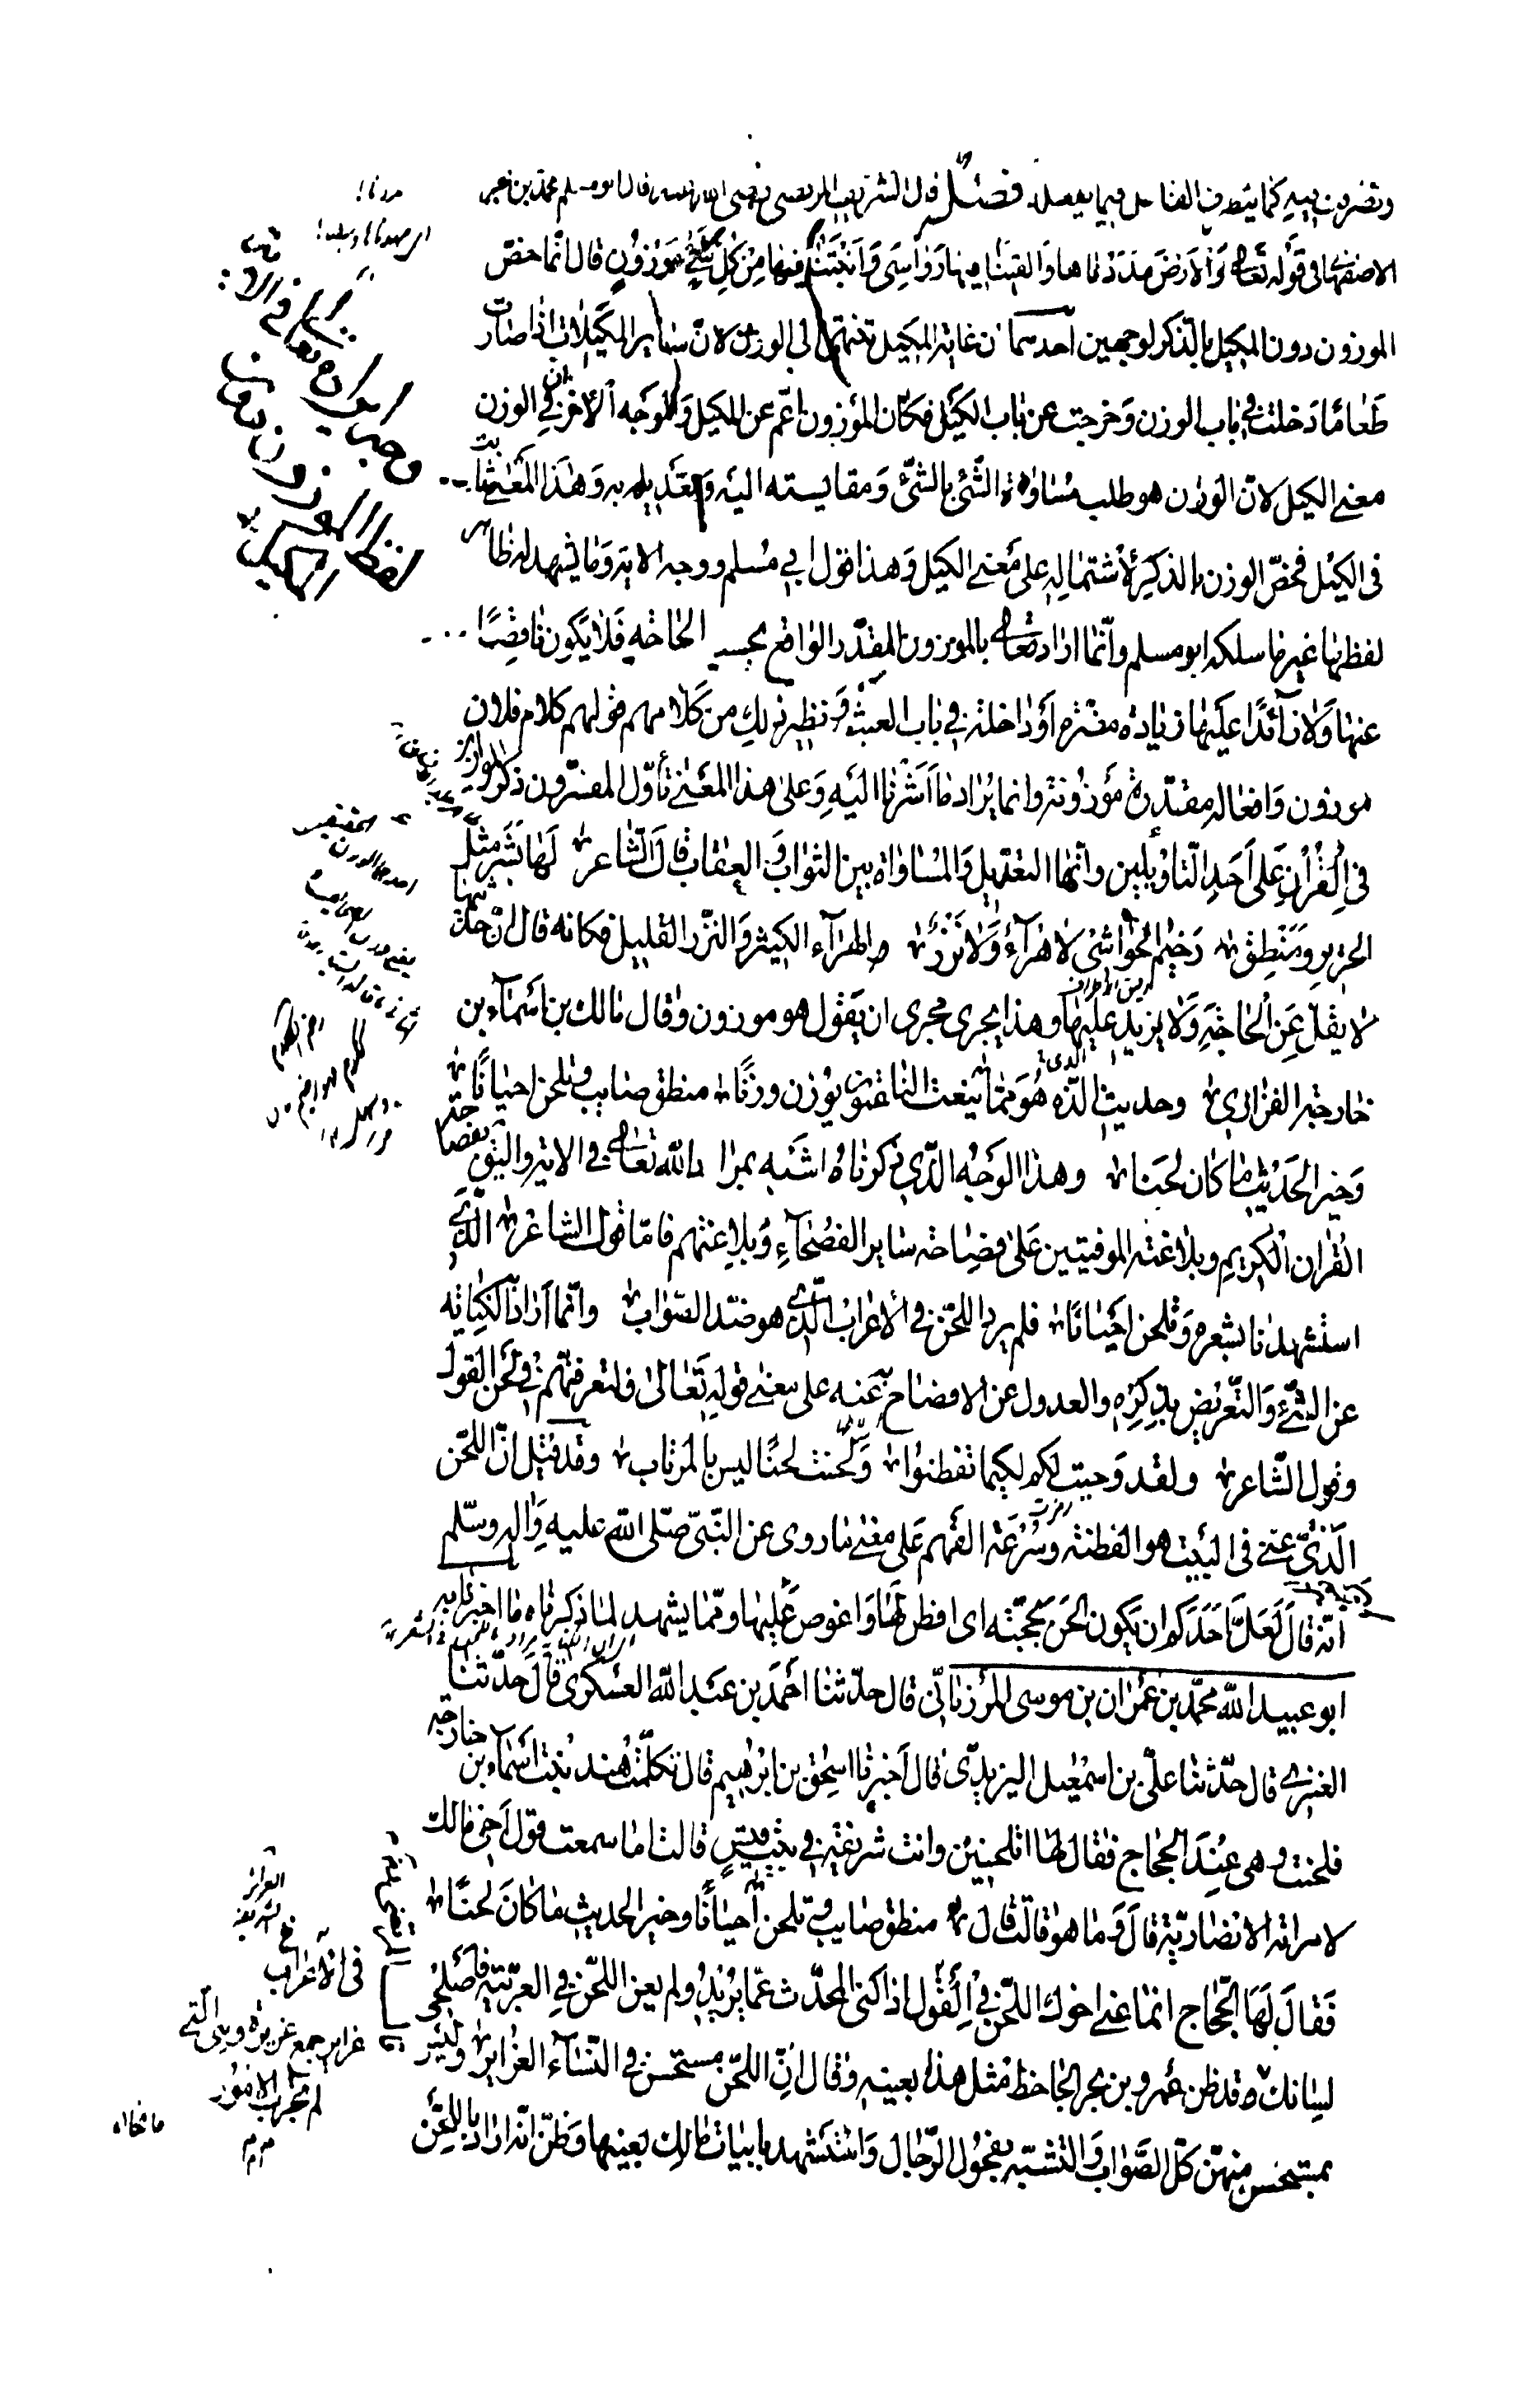 وتصرف فيه كما يتصرف الفاعل فيما يفعله فصل قال الشريف المرتضى قال ابو مسلم محمد بن بحر
الاصفهانى فى قوله تعالى والارض مددناها والقينا فيها رواسى وانبتنا فيها من كل شئ موزون قال انما خص
الموزون دون المكيل بالذكر لوجهين احدهما ان غاية المكيل تنتهى الى الوزن لان سائر المكيلات اذا صارت
طعاما دخلت فى باب الوزن وخرجت عن باب الكيل فكان الموزون اعم عن المكيل والوجه الاخر ان فى الوزن
معنى الكيل لان الوزن هو طلب مساواة الشئ بالشئ ومقايسته اليه وتعديله به وهذا المعنى ثابت
فى الكيل فخص الوزن بالذكر لاشتماله على معنى الكيل وهذا قول ابى مسلم ووجه الاية وما يشهد له ظاهر
لفظها غير ما سلكه ابو مسلم وانما اراد تعالى بالموزون المقدر الواقع بحسب الحاجة فلا يكون ناقصا
عنها ولا زائدا عليها زيادة مضرة او داخلة فى باب العبث ونظير ذلك من كلامهم قولهم كلام فلان
موزون وافعاله مقدرة موزونة وانما يراد ما اشرنا اليه وعلى هذا المعنى تأول المفسرون ذكر الموازين
فى القرآن على احد التاويلين وانها التعديل والمساواة بين الثواب والعقاب قال الشاعر لها بشر مثل
الحرير ومنطق رخيم الحواشى لا هراء ولا نزر والهراء الكثير والنزر القليل فكانه قال ان حديثها
لا يقل عن الحاجة ولا يزيد عليها وهذا يجرى مجرى ان يقول هو موزون وقال مالك بن اسماء بن
خارجة الفزارى وحديث الذه هو مما ينعت الناعتون يوزن وزنا منطق صايب وتلحن احيانا
وخير الحديث ما كان لحنا وهذا الوجه الذى ذكرناه اشبه بمراد الله تعالى فى الاية واليق بفصاحة
القران الكريم وبلاغته الموفيتين على فصاحة ساير الفصحاء وبلاغتهم فاما قول الشاعر الذى
استشهدنا بشعره وتلحن احيانا فلم يرد اللحن فى الاعراب الذى هو ضد الصواب وانما اراد الكناية
عن الشئ والتعريض بذكره والعدول عن الافصاح عنه على معنى قوله تعالى ولتعرفنهم فى لحن القول
وقول الشاعر ولقد وحيت لكم لكيما تفطنوا ولحنت لحنا ليس بالمرتاب وقد قيل ان اللحن
الذى عنى فى البيت هو الفطنة وسرعة الفهم على معنى ما روى عن النبى صلى الله عليه واله وسلم
انه قال لعل احدكم ان يكون الحن بحجته اى افطن لها واغوص عليها ومما يشهد لما ذكرناه ما اخبرنا به
ابو عبيد الله محمد بن عمران بن موسى المرزبانى قال حدثنا احمد بن عبد الله العسكرى قال حدثنا
العنزى قال حدثنا على بن اسمعيل اليزيدى قال اخبرنا اسحق بن ابرهيم قال تكلمت هند بنت اسماء بن خارجة
فلحنت وهى عند الحجاج فقال لها اتلحنين وانت شريفة فى بيت قيس قالت اما سمعت قول اخى مالك
لامراته الانصارية قال وما هو قالت قال منطق صايب وتلحن احيانا وخير الحديث ما كان لحنا
فقال لها الحجاج انما عنى اخوك اللحن فى القول اذا كنى المحدث عما يريد ولم يعن اللحن فى العربية فاصلحى
لسانك وقد ظن عمرو بن بحر الجاحظ مثل هذا بعينه وقال ان اللحن مستحسن فى النساء الغراير وليس
بمستحسن منهن كل الصواب والتشبه بفحول الرجال واستشهد بابيات مالك بعينها وظن انه اراد باللحن
فى الاعراب
غراير جمع غريرة وهى التى
لم تجرب الامور